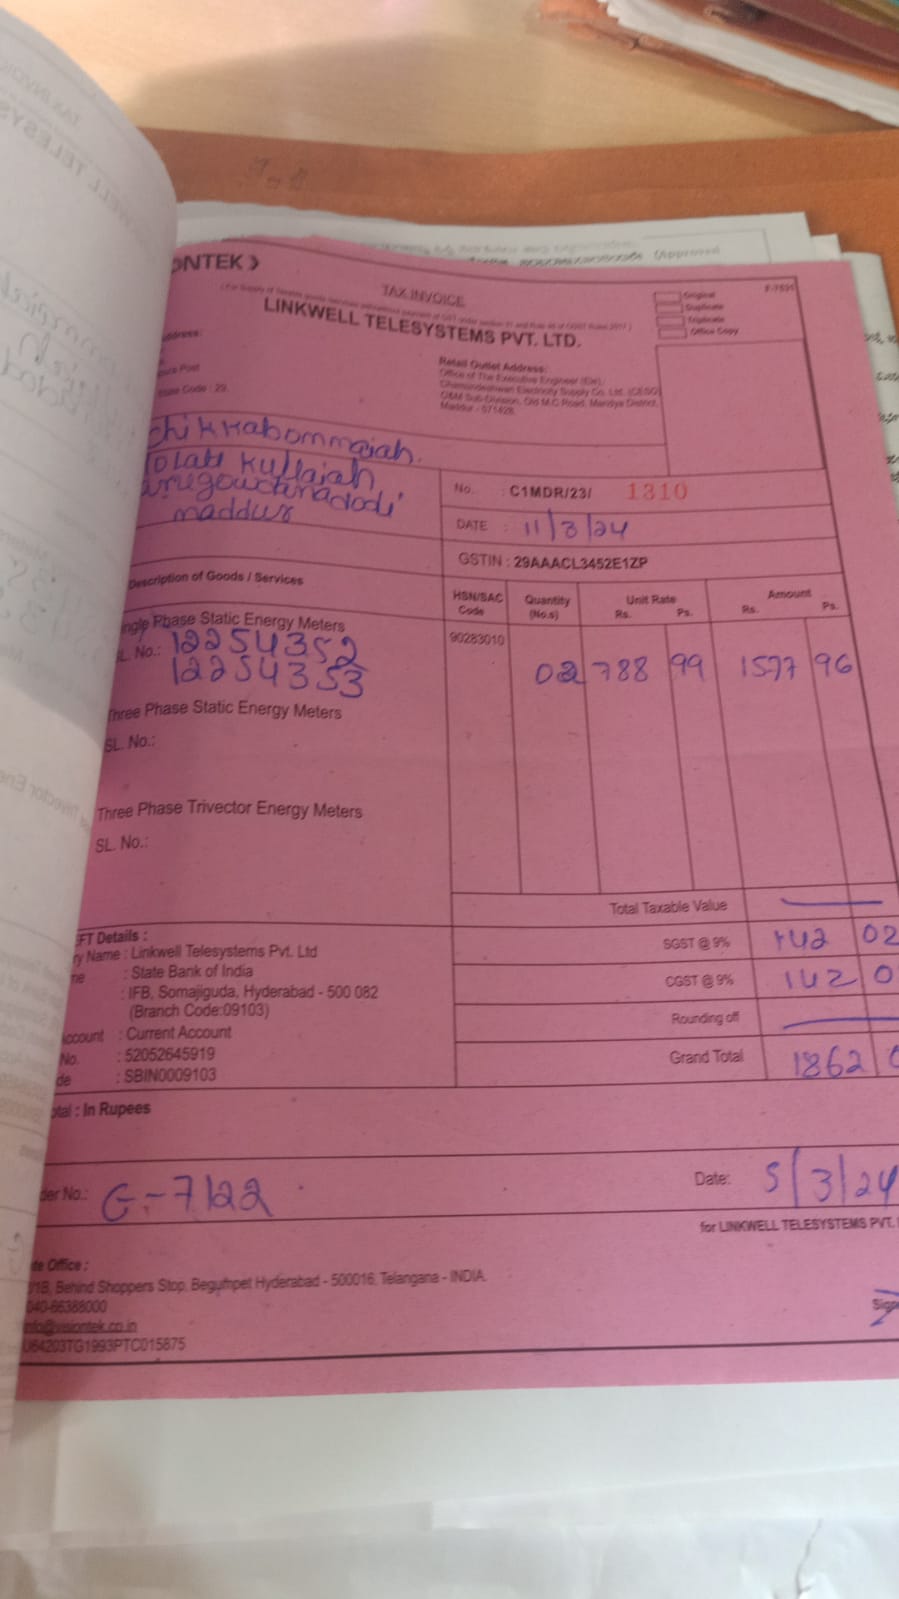 ONTEK
TAX INVOICE
LINKWELL TELESYSTEMS PVT. LTD.
F-7531
Original
Duplicate
Triplicate
Office Copy
Retail Outlet Address:
Office of The Executive Engineer (Ele),
Chamundeshwari Electricity Supply Co. Ltd. (CESC)
O&M Sub-Division, Old M.C Road, Mandya District,
Maddur - 571428.
Post
Code : 29
Chikkabommaiah.
Late Kullaiah
maddur
No. : C1MDR/23/ 1310
DATE : 11/3/24
GSTIN : 29AAACL3452E1ZP
Description of Goods / Services
HSN/SAC Code
Quantity (No.s)
Unit Rate
Rs. Ps.
Amount
Rs. Ps.
ngle Phase Static Energy Meters
L. No.: 12254352
12254353
90283010 02 788 99 1577 96
Three Phase Static Energy Meters
SL. No.:
Three Phase Trivector Energy Meters
SL. No.:
Total Taxable Value
SGST @ 9% 142 02
CGST @ 9% 142 0
Rounding off
Grand Total 1862
FT Details :
y Name : Linkwell Telesystems Pvt. Ltd
me : State Bank of India
: IFB, Somajiguda, Hyderabad - 500 082
(Branch Code:09103)
ccount : Current Account
No. : 52052645919
de : SBIN0009103
otal : In Rupees
der No.: G-7122
Date: 5/3/24
for LINKWELL TELESYSTEMS PVT.
te Office :
1B, Behind Shoppers Stop, Begumpet Hyderabad - 500016, Telangana - INDIA.
040-66388000
info@visiontek.co.in
U64203TG1993PTC015875